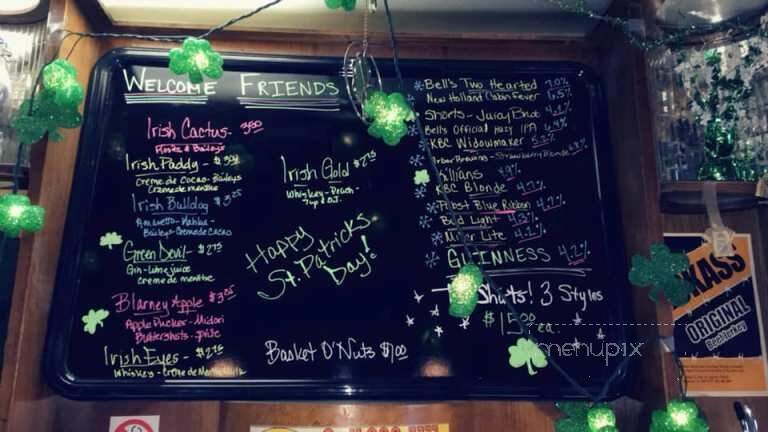 WELCOME FRIENDS
Irish Cactus - 3.50
Irish Paddy -
Creme de Cacao - Baileys
Creme de menthe
Irish Bulldog
Amaretto - Kahlua -
Baileys - Creme de Cacao
Green Devil - $2.75
Gin - Lime juice
creme de menthe
Blarney Apple
Apple Pucker - Midori
Buttershots -
Irish Eyes - $2.75
Whiskey -
Irish Gold $2.75
Whiskey - Peach -
7up & OJ.
Happy
St. Patricks
Day!
Basket O'Nuts $1.00
Bell's Two Hearted 7.0%
New Holland Cabin Fever
Shorts - Juicy Brut
Bell's Official Hazy IPA 6.4%
KBC Widowmaker 5.2%
Arbor Brewing - Strawberry Blonde
Killians
KBC Blonde 4.7%
Pabst Blue Ribbon 4.7%
Bud Light
Miller Lite 4.2%
GUINNESS 4.2%
Shirts! 3 Styles
$15.00 ea
menupix
KASS
ORIGINAL
Beef Jerky